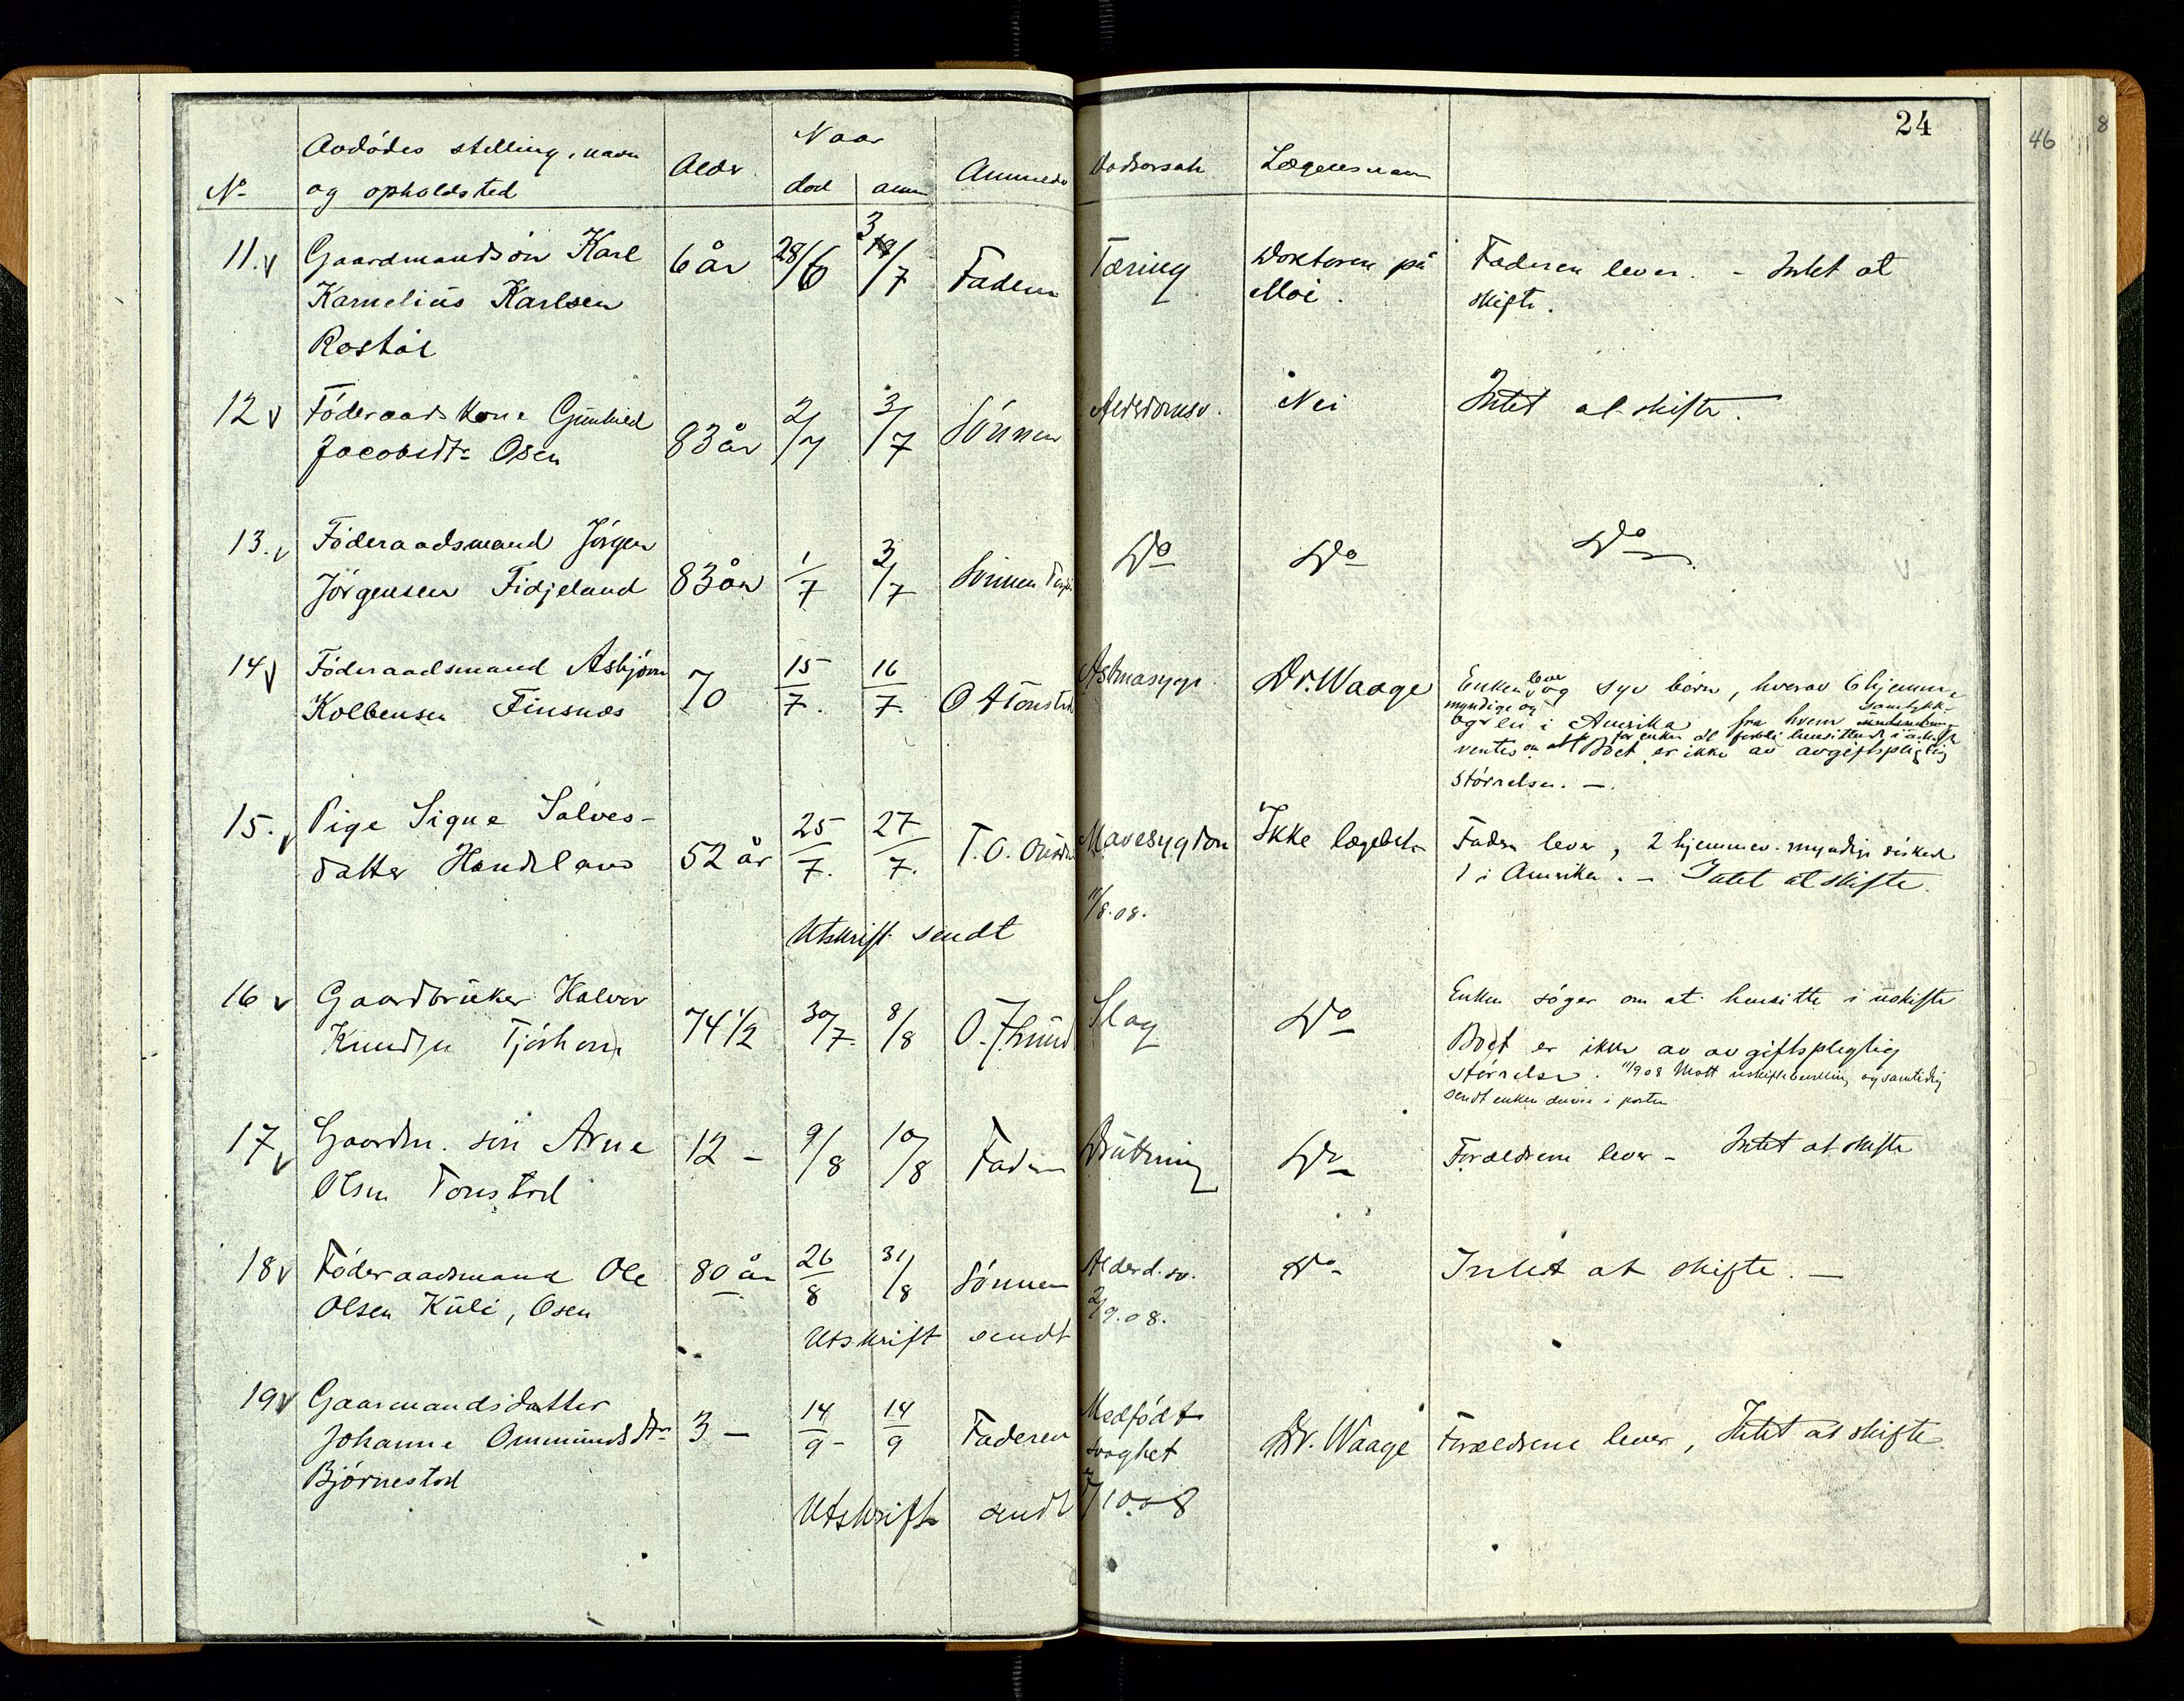 24
46
8
No
Avdødes stilling, navn
og opholdssted
Alder
Naar
død
anm
Anmeldt
Dødsorsak
Lægens navn
11. Gaardmandsøn Karl
Karnelius Karlsen
Røstøl
6 år 28/6 3/7 Faderen
Tæring
Doktoren på
Moi.
Faderen lever. - Intet at
skifte.
12 Føderaadskone Gunhild
Jacobsdtr Osen
83 år 2/7 3/7 Sønnen
Alderdomsv.
Nei
Intet at skifte.
13. Føderaadsmand Jørgen
Jørgensen Fidjeland
83 år 1/7 3/7 Sønnen
Do
Do
Do
14 Føderaadsmand Asbjørn
Kolbensen Finsnes
70 15/7. 16/7. O A Tonstad
Astmasyge
Dr. Waage
Enken lever og syv børn, hverav 6 hjemme
myndige og
og en i Amerika, fra hvem samtykk-
ventes om at Boet er ikke av avgiftspligtig
størrelse. -
15. Pige Signe Salves-
datter Handeland
52 år 25/7. 27/7. T. O.
Mavesygdom
Ikke lægebeh
Faden lever, 2 hjemmev. myndige søsken
1 i Amerika. - Intet at skifte.
Utskrift sendt 11/8.08.
16 Gaardbruker Halvor
Knudsen Tjørhom
74 1/2 30/7. 8/8 O.
Slag
Do
Enken søger om at hensitte i uskifte
Boet er ikke av avgiftspligtig
størrelse. 11/9 08 Mott uskiftebevilling og samtidig
sendt enken denne i posten
17 Gaardm. søn Arne
Olsen Tonstad
12 - 9/8 10/8 Faderen
Drukning
Do
Forældrene lever - Intet at skifte
18 Føderaadsmand Ole
Olsen Kuli, Osen
80 år 26/8 31/8 Sønnen
Alderd. sv.
Do
Intet at skifte. -
Utskrift sendt 2/9.08.
19 Gaarmandsdatter
Johanne Ommundsdtr
Bjørnestad
3 - 14/9 - 14/9 Faderen
Medfødt
svaghet
Dr. Waage
Forældrene lever, Intet at skifte.
Utskrift sendt /10.08